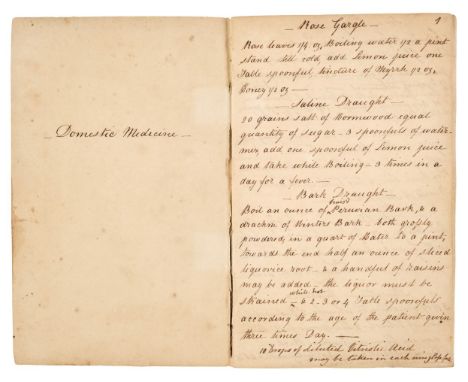 - Domestic Medicine -
1
- Rose Gargle -
Rose leaves 1/4 oz, Boiling water 1/2 a pint
stand till cold, add Lemon juice one
Table spoonful, tincture of Myrrh 1/2 oz,
Honey 1/2 oz -
- Saline Draught -
20 grains salt of Wormwood equal
quantity of sugar - 3 spoonfuls of water -
mix add one spoonful of Lemon juice
and take while Boiling - 3 times in a
day for a fever -
- Bark Draught -
Boil an ounce of Peruvian Bark, & a
drachm of Winters Bark - both grossly
powdered, in a quart of Water to a pint,
towards the end half an ounce of sliced
liquorice root - & a handful of raisins
may be added - the liquor must be
while hot
strained - & 2-3 or 4 Table spoonfuls
according to the age of the patient given
three times Day. -
10 Drops of diluted Vitriolic Acid
may be taken in each